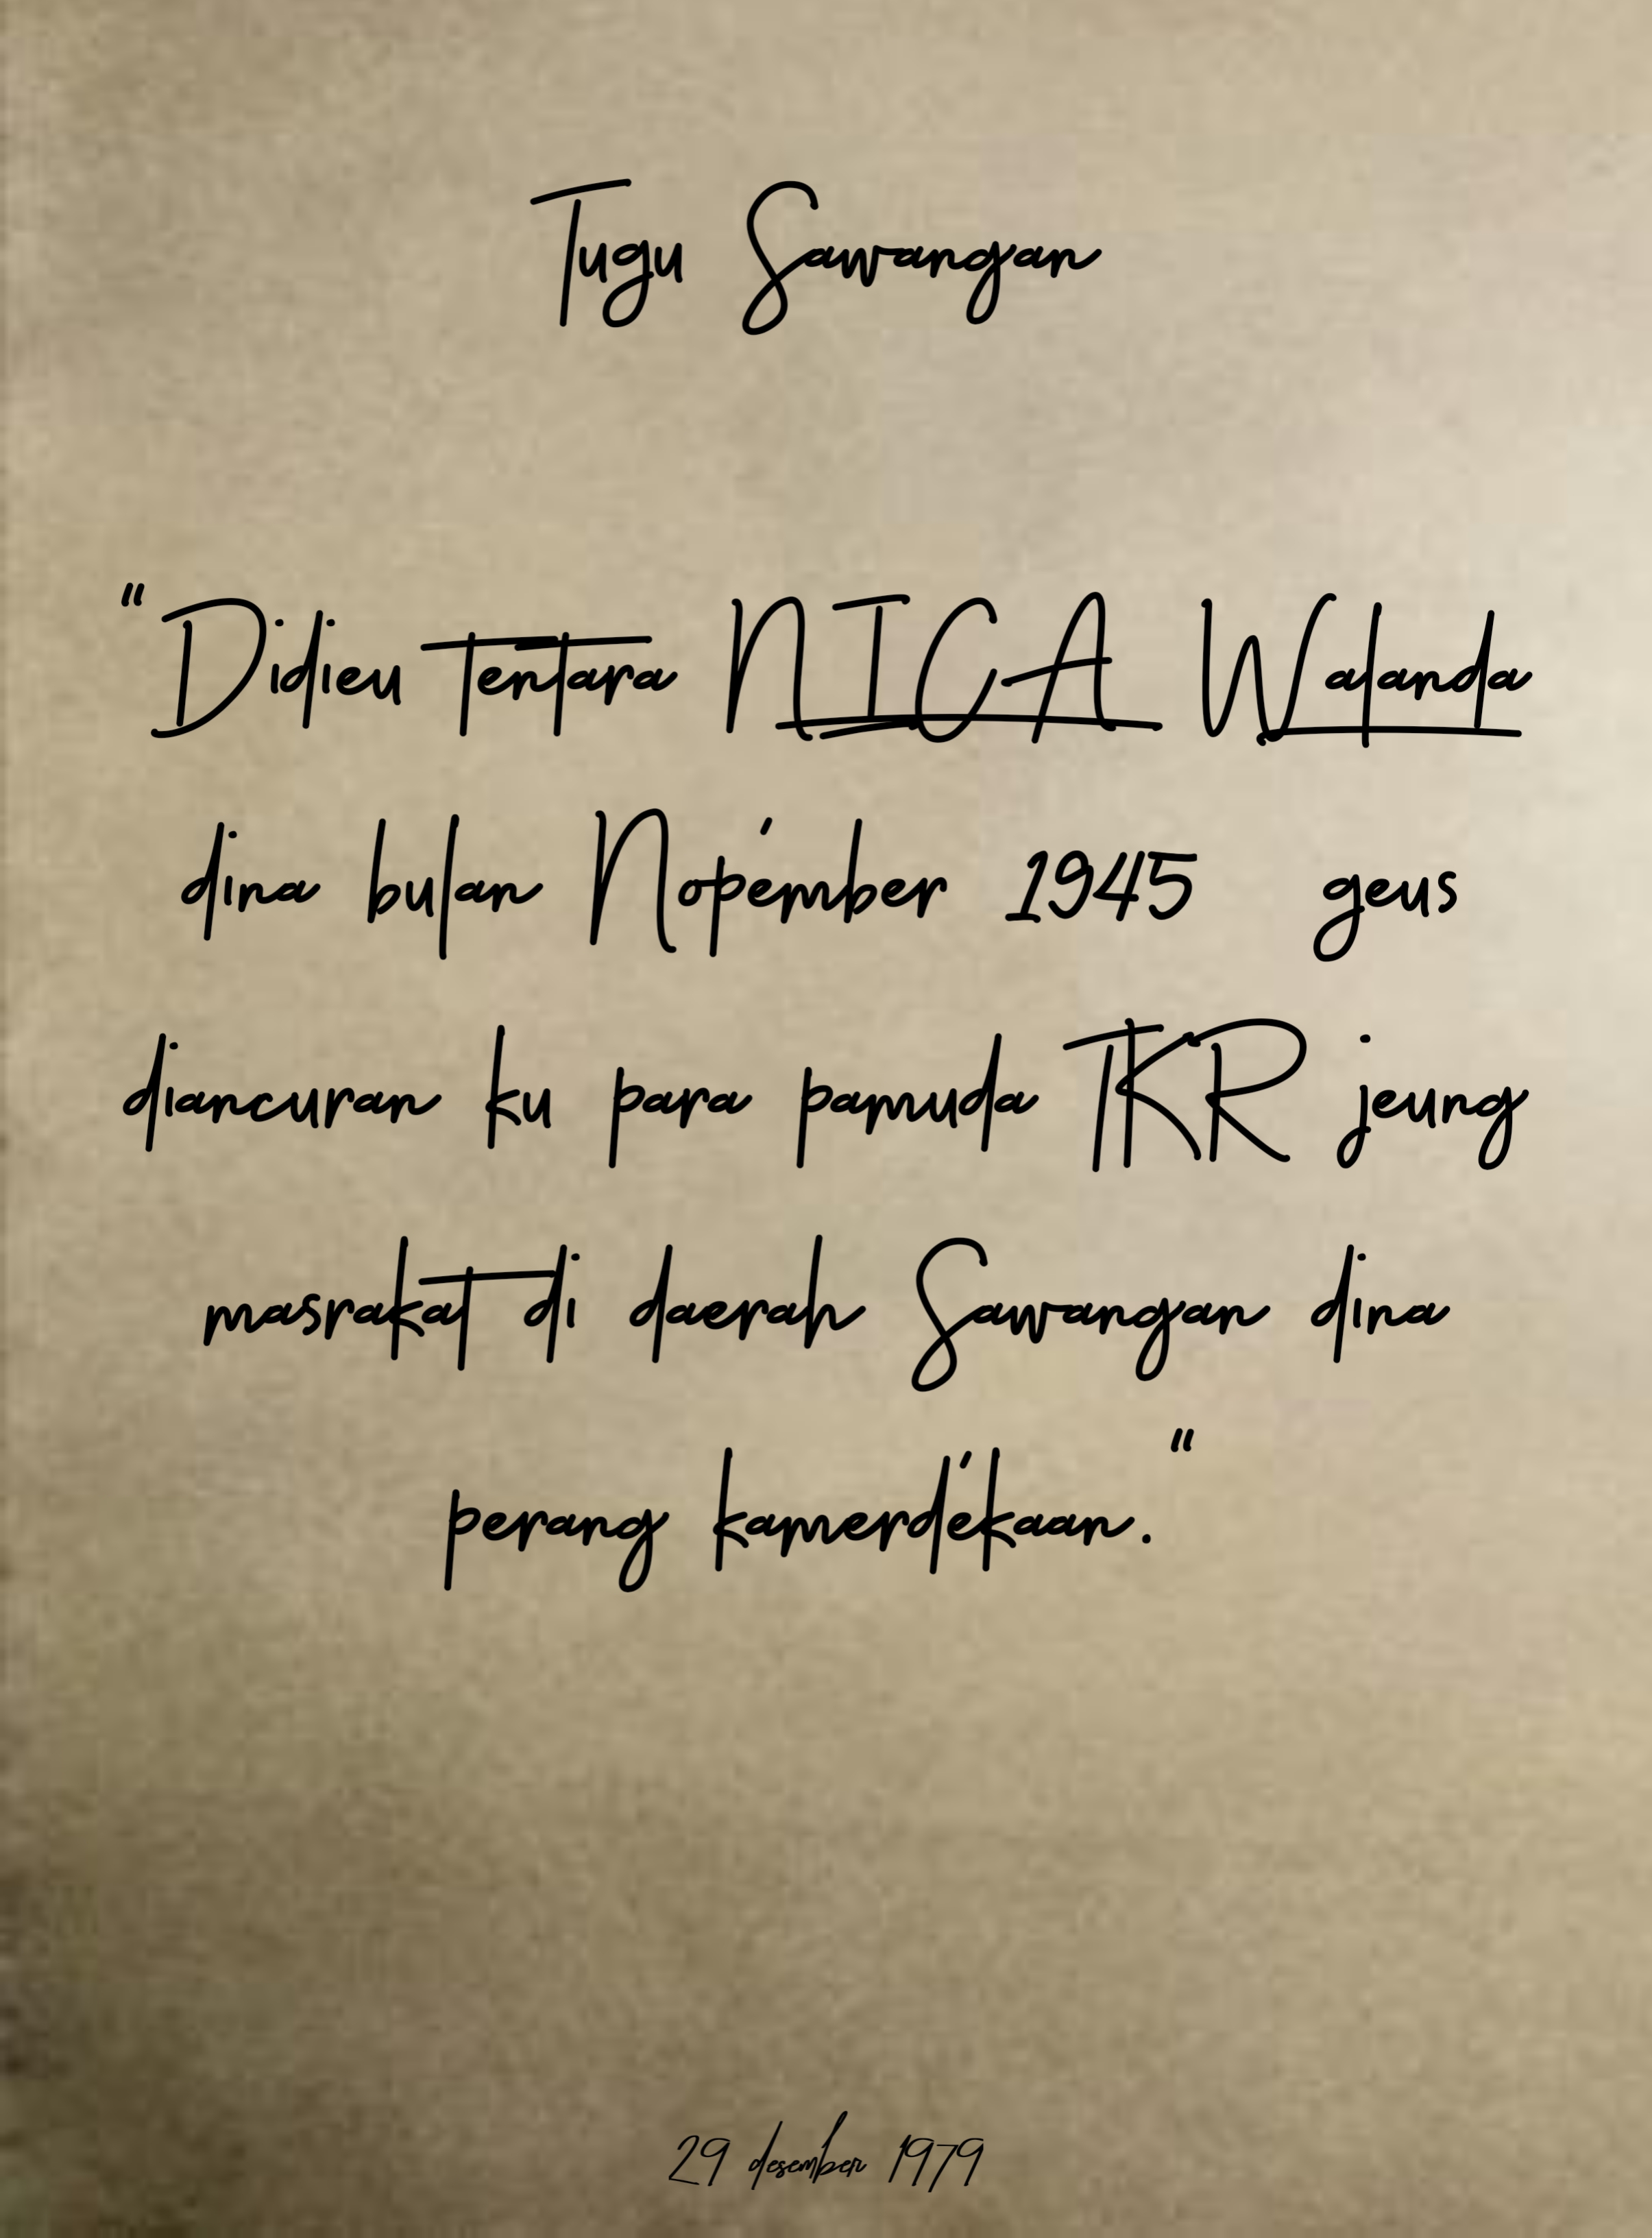 Tugu Sawangan
"Didieu tentara NICA Walanda
dina bulan Nopémber 1945 geus
diancuran ku para pamuda TKR jeung
masrakat di daerah Sawangan dina
perang kamerdékaan."
29 desember 1979